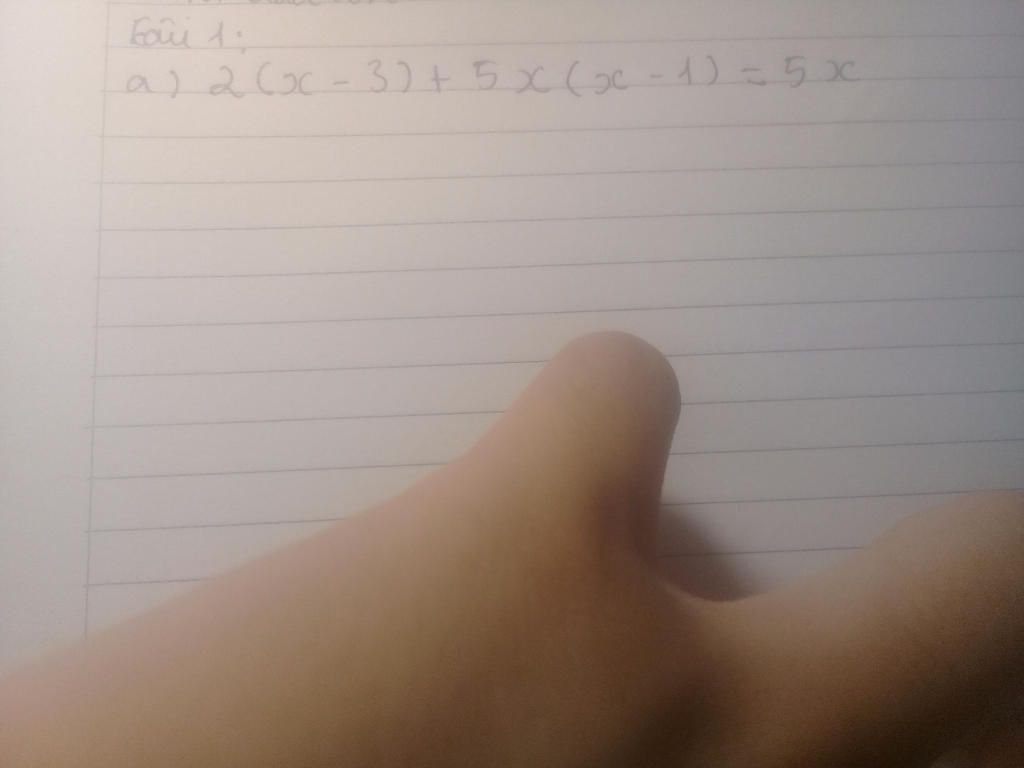 Bài 1:
a) 2(x - 3) + 5x(x - 1) = 5x